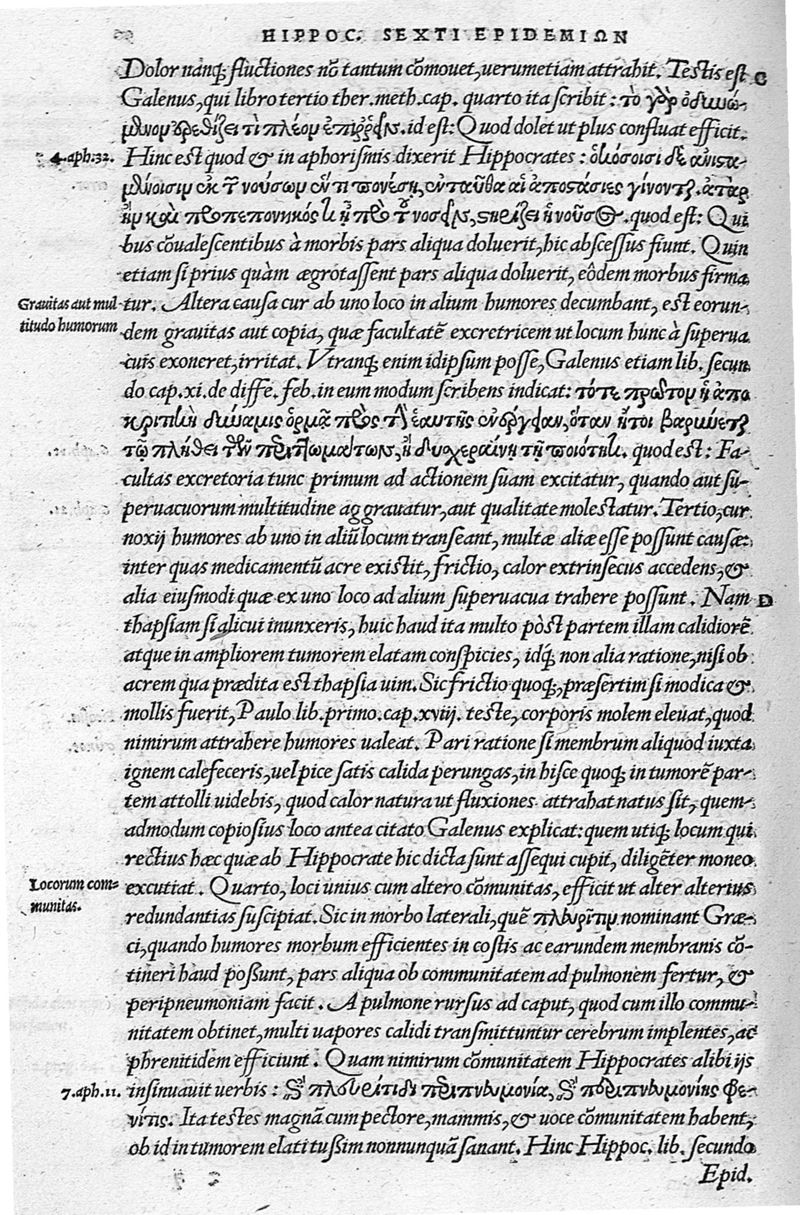 HIPPOC. SEXTI EPIDEMIΩN
Dolor nanq; fluctiones nõ tantum cõmouet, uerumetiam attrahit. Testis est C
Galenus, qui libro tertio ther. meth. cap. quarto ita scribit: τὸ γὰρ ὀδυνώ-
μενον ἐρεθίζει τὶ πλέον ἐπιῤῥεῖν. id est: Quod dolet ut plus confluat efficit.
4. aph. 32. Hinc est quod & in aphorismis dixerit Hippocrates: ὁκόσοισι δὲ ἀνιστα-
μένοισιν ἐκ τῶν νούσων ἤν τι πονέσῃ, ἐνταῦθα αἱ ἀποστάσιες γίνονται. ἀτὰρ
ἢν καὶ προπεπονηκός τι ᾖ πρὸ τοῦ νοσεῖν, στηρίζει ἡ νοῦσος. quod est: Qui
bus cõualescentibus à morbis pars aliqua doluerit, hic abscessus fiunt. Quin
etiam si prius quàm ægrotassent pars aliqua doluerit, eôdem morbus firma
Grauitas aut mul-
titudo humorum
tur. Altera causa cur ab uno loco in alium humores decumbant, est eorun-
dem grauitas aut copia, quæ facultatẽ excretricem ut locum hunc à superua
cuis exoneret, irritat. Vtranq; enim idipsum posse, Galenus etiam lib. secun
do cap. xi. de diffe. feb. in eum modum scribens indicat: τότε πρῶτον ἡ ἀπο
κριτικὴ δύναμις ὁρμᾷ πρὸς τὴν ἑαυτῆς ἐνέργειαν, ὅταν ἤτοι βαρύνεται
τῷ πλήθει τῶν περιττωμάτων, ἢ δυσχεραίνῃ τῇ ποιότητι. quod est: Fa-
cultas excretoria tunc primum ad actionem suam excitatur, quando aut su-
peruacuorum multitudine aggrauatur, aut qualitate molestatur. Tertio, cur
noxij humores ab uno in aliũ locum transeant, multæ aliæ esse possunt causæ:
inter quas medicamentũ acre existit, frictio, calor extrinsecus accedens, &
alia eiusmodi quæ ex uno loco ad alium superuacua trahere possunt. Nam D
thapsiam si alicui inunxeris, huic haud ita multo pòst partem illam calidiorẽ
atque in ampliorem tumorem elatam conspicies, idq; non alia ratione, nisi ob
acrem qua prædita est thapsia uim. Sic frictio quoq;, præsertim si modica &
mollis fuerit, Paulo lib. primo. cap. xviij. teste, corporis molem eleuat, quod
nimirum attrahere humores ualeat. Pari ratione si membrum aliquod iuxta
ignem calefeceris, uel pice satis calida perungas, in hisce quoq; in tumorẽ par-
tem attolli uidebis, quod calor natura ut fluxiones attrahat natus sit, quem-
admodum copiosius loco antea citato Galenus explicat: quem utiq; locum qui
rectius hæc quæ ab Hippocrate hic dicta sunt assequi cupit, diligẽter moneo
Locorum com-
munitas.
excutiat. Quarto, loci unius cum altero cõmunitas, efficit ut alter alterius
redundantias suscipiat. Sic in morbo laterali, quẽ πλευρῖτιν nominant Græ-
ci, quando humores morbum efficientes in costis ac earundem membranis cõ-
tineri haud possunt, pars aliqua ob communitatem ad pulmonem fertur, &
peripneumoniam facit. A pulmone rursus ad caput, quod cum illo commu-
nitatem obtinet, multi uapores calidi transmittuntur cerebrum implentes, ac
phrenitidem efficiunt. Quam nimirum cõmunitatem Hippocrates alibi ijs
7. aph. 11. insinuauit uerbis: ἐπὶ πλευρίτιδι περιπνευμονία, ἐπὶ περιπνευμονίης φρε-
νίτις. Ita testes magnã cum pectore, mammis, & uoce cõmunitatem habent,
ob id in tumorem elati tussim nonnunquã sanant. Hinc Hippoc. lib. secundo
Epid.